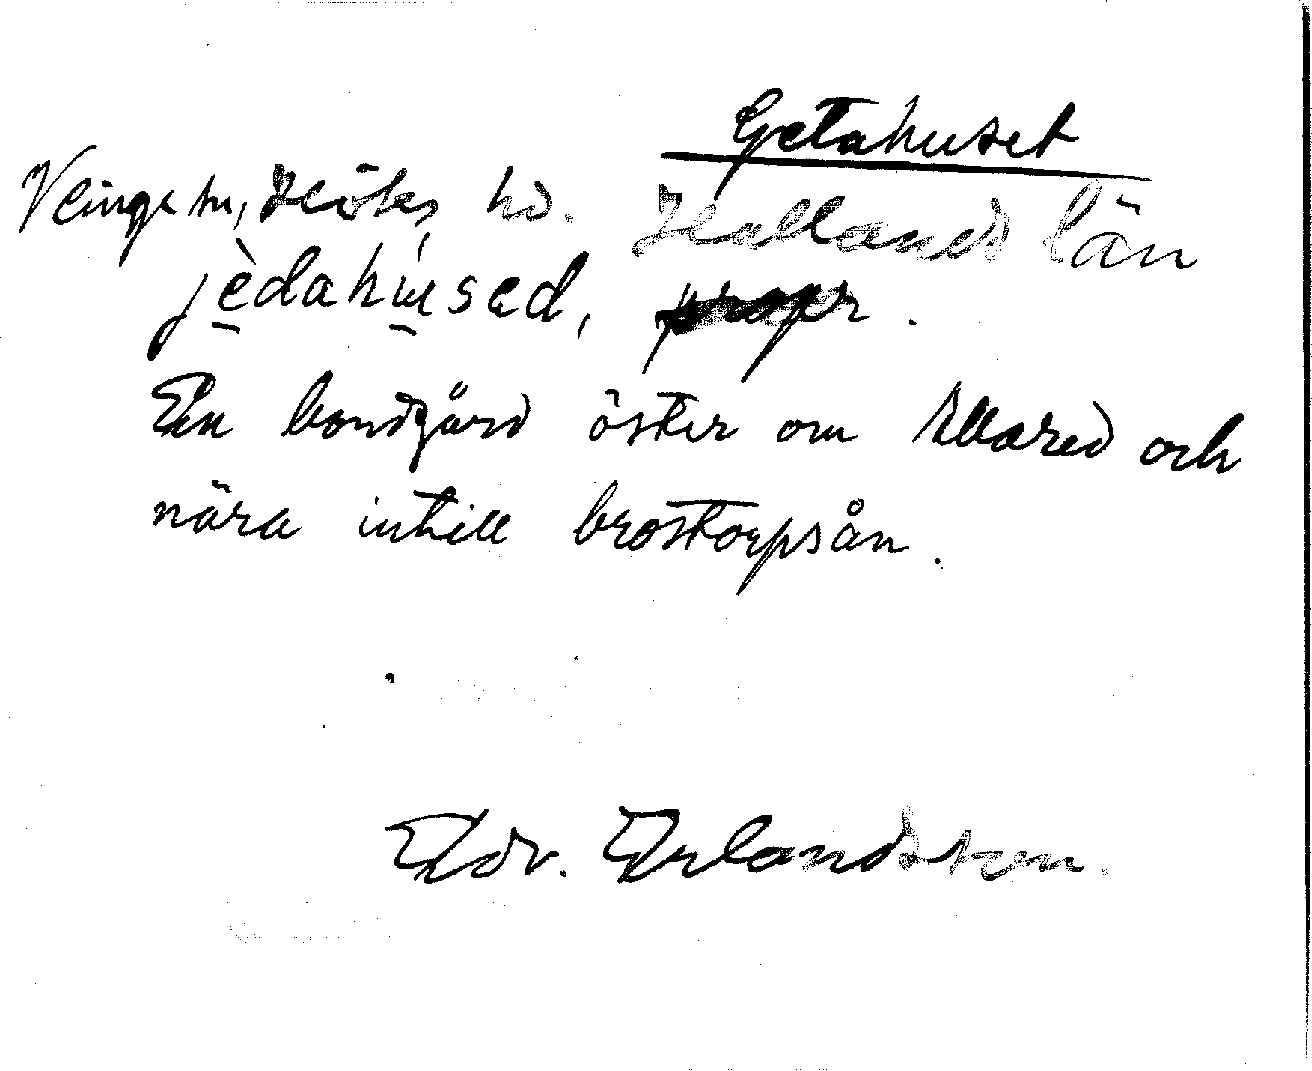 Getahuset
Veinge sn, Höks hd. Hallands län
jèdahu̱sed, propr.
En bondgård öster om Allared och
nära intill brostorpsån.
Edv. Erlandsson.